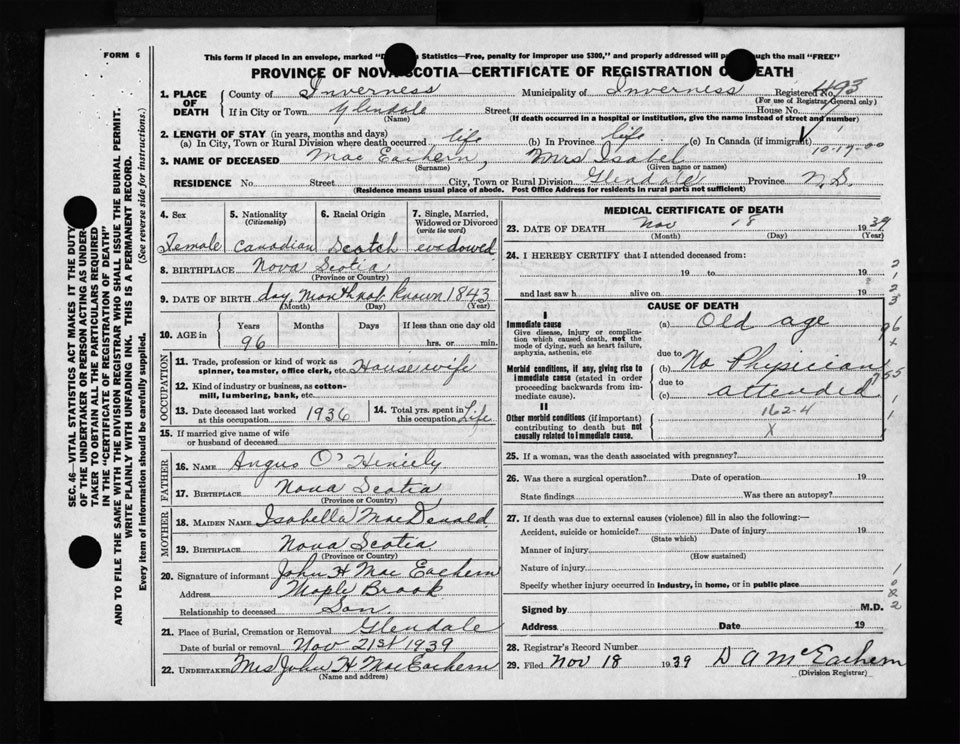 FORM 6
This form if placed in an envelope, marked "D Statistics—Free, penalty for improper use $300," and properly addressed will p ough the mail "FREE"
PROVINCE OF NOVA SCOTIA—CERTIFICATE OF REGISTRATION OF DEATH
1. PLACE OF DEATH County of Inverness Municipality of Inverness Registered No. 1193
(For use of Registrar General only)
If in City or Town Glendale Street House No.
(Name) (If death occurred in a hospital or institution, give the name instead of street and number)
2. LENGTH OF STAY (in years, months and days)
(a) In City, Town or Rural Division where death occurred life (b) In Province life (c) In Canada (if immigrant)
10-17-00
3. NAME OF DECEASED Mac Eachern, Mrs Isabel
(Surname) (Given name or names)
RESIDENCE No. Street City, Town or Rural Division Glendale Province N.S.
(Residence means usual place of abode. Post Office Address for residents in rural parts not sufficient)
4. Sex
Female
5. Nationality
(Citizenship)
Canadian
6. Racial Origin
Scotch
7. Single, Married, Widowed or Divorced
(write the word)
8. BIRTHPLACE Nova Scotia
(Province or Country)
9. DATE OF BIRTH day, month not known 1843
(Month) (Day) (Year)
10. AGE in Years Months Days If less than one day
96 hrs. or min.
OCCUPATION
11. Trade, profession or kind of work as spinner, teamster, office clerk, etc. Housewife
12. Kind of industry or business, as cotton-mill, lumbering, bank, etc.
13. Date deceased last worked at this occupation 1936
14. Total yrs. spent in this occupation Life
15. If married give name of wife or husband of deceased
FATHER
16. NAME Angus O'
17. BIRTHPLACE Nova Scotia
(Province or Country)
MOTHER
18. MAIDEN NAME Isabella MacDonald
19. BIRTHPLACE Nova Scotia
(Province or Country)
20. Signature of informant John H Mac Eachern
Address Maple Brook
Relationship to deceased Son
21. Place of Burial, Cremation or Removal Glendale
Date of burial or removal Nov 21st 1939
22. UNDERTAKER Mrs John H MacEachern
(Name and address)
MEDICAL CERTIFICATE OF DEATH
23. DATE OF DEATH Nov 18 1939
(Month) (Day) (Year)
24. I HEREBY CERTIFY that I attended deceased from:
19 to 19
and last saw h alive on 19
CAUSE OF DEATH
I
Immediate cause
Give disease, injury or complication which caused death, not the mode of dying, such as heart failure, asphyxia, asthenia, etc
(a) Old age
due to
Morbid conditions, if any, giving rise to immediate cause (stated in order proceeding backwards from immediate cause).
(b) No Physician
due to
(c) attended
II
Other morbid conditions (if important) contributing to death but not causally related to immediate cause.
162-4
X
25. If a woman, was the death associated with pregnancy?
26. Was there a surgical operation? Date of operation 19
State findings Was there an autopsy?
27. If death was due to external causes (violence) fill in also the following:—
Accident, suicide or homicide? Date of injury 19
(State which)
Manner of injury
(How sustained)
Nature of injury
Specify whether injury occurred in industry, in home, or in public place
Signed by M.D.
Address Date 19
28. Registrar's Record Number
29. Filed Nov 18 1939 D A McEachern
(Division Registrar)
SEC. 46—VITAL STATISTICS ACT MAKES IT THE DUTY
OF THE UNDERTAKER OR PERSON ACTING AS UNDER-
TAKER TO OBTAIN ALL THE PARTICULARS REQUIRED
IN THE "CERTIFICATE OF REGISTRATION OF DEATH"
AND TO FILE THE SAME WITH THE DIVISION REGISTRAR WHO SHALL ISSUE THE BURIAL PERMIT.
WRITE PLAINLY WITH UNFADING INK. THIS IS A PERMANENT RECORD.
Every item of information should be carefully supplied. (See reverse side for instructions.)